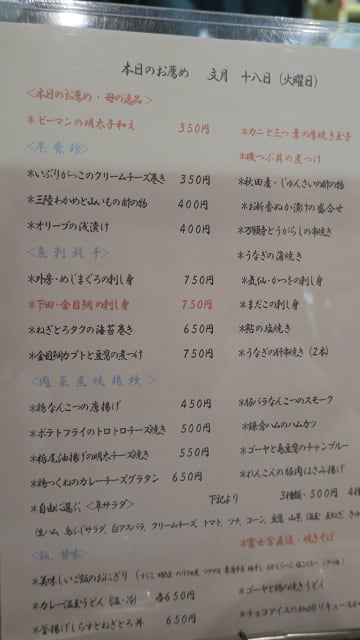 本日のお薦め 文月 十八日(火曜日)
<本日のお薦め・母の逸品>
*ピーマンの明太子和え 350円
<早采珍>
*いぶりがっこのクリームチーズ巻き 350円
*三陸わかめと山いもの酢の物 400円
*オリーブの浅漬け 400円
<魚刺鮮干>
*外房・めじまぐろの刺し身 750円
*下田・金目鯛の刺し身 750円
*ねぎとろタクの海苔巻き 650円
*金目鯛カブトと豆腐の煮つけ 750円
<肉菜煮焼揚炊>
*鶏なんこつの唐揚げ 450円
*ポテトフライのトロトロチーズ焼き 500円
*栃尾油揚げの明太チーズ焼き 550円
*鶏つくねのカレーチーズグラタン 650円
*自由に選ぶ <皿サラダ> 下記より 3種類・500円 4種
生ハム、鳥ふじサラダ、白アスパラ、クリームチーズ、トマト、ツナ、コーン、豆腐、山菜、温玉、玉ねぎ、きゅ
<飯 甘味>
*美味しいご飯のおにぎり
*カレー温玉うどん(温・冷) 各650円
*釜揚げしらすとねぎとろ丼 650円
*カニと三つ葉の厚焼き玉子
*磯つぶ貝の煮つけ
*秋田産・じゅんさいの酢の物
*お新香ぬか漬けの盛合せ
*万願寺とうがらしの串焼き
*うなぎの蒲焼き
*気仙・かつをの刺し身
*まだこの刺し身
*鮎の塩焼き
*うなぎの肝串焼き(2本)
*豚バラなんこつのスモーク
*鎌倉ハムのハムカツ
*ゴーヤと島豆腐のチャンプルー
*れんこんの豚肉はさみ揚げ
*富士宮直送・焼きそば
*ゴーヤと鶏の焼きうどん
*チョコアイスの珈琲リキュールか